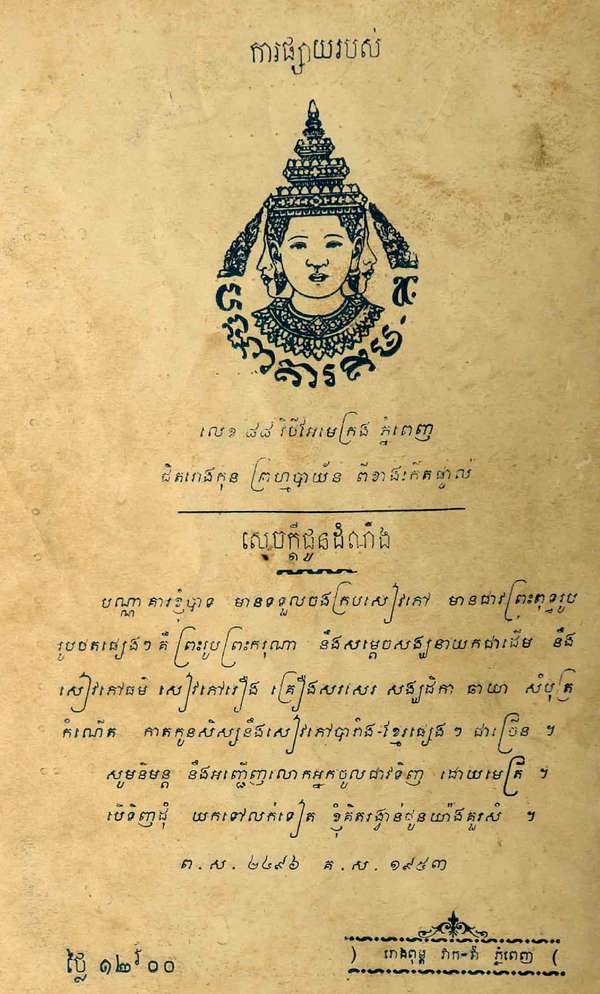 ការផ្សាយរបស់
បណ្ណាគារគឹម-សេង
លេខ ៨៨ វិថីអមេក្រង ភ្នំពេញ
ជិតរោងកុន ព្រហ្មបាយ័ន ពីខាងកើតផ្ទាល់
សេចក្ដីជូនដំណឹង
បណ្ណាគារខ្ញុំបាទ មានទទួលចងក្របសៀវភៅ មានជាវព្រះពុទ្ធរូប
រូបថតផ្សេងៗ គឺ ព្រះរូបព្រះករុណា នឹងសម្ដេចសង្ឃនាយកជាដើម នឹង
សៀវភៅធម៌ សៀវភៅរឿង គ្រឿងសរសេរ សង្ឃដិកា ឆាយា សំបុត្រ
កំណើត កាតកូនសិស្សនឹងសៀវភៅបារាំង-ខ្មែរផ្សេង ៗ ជាច្រើន ។
សូមនិមន្ត នឹងអញ្ជើញលោកអ្នកចូលជាវទិញ ដោយមេត្រី ។
បើទិញដុំ យកទៅលក់ទៀត ខ្ញុំគិតរង្វាន់ជូនយ៉ាងគួរសំ ។
ព . ស . ២៤៩៦ គ . ស . ១៩៥៣
ថ្លៃ ១២៛០០
រោងពុម្ព វ៉ាក-វ៉ាំ ភ្នំពេញ